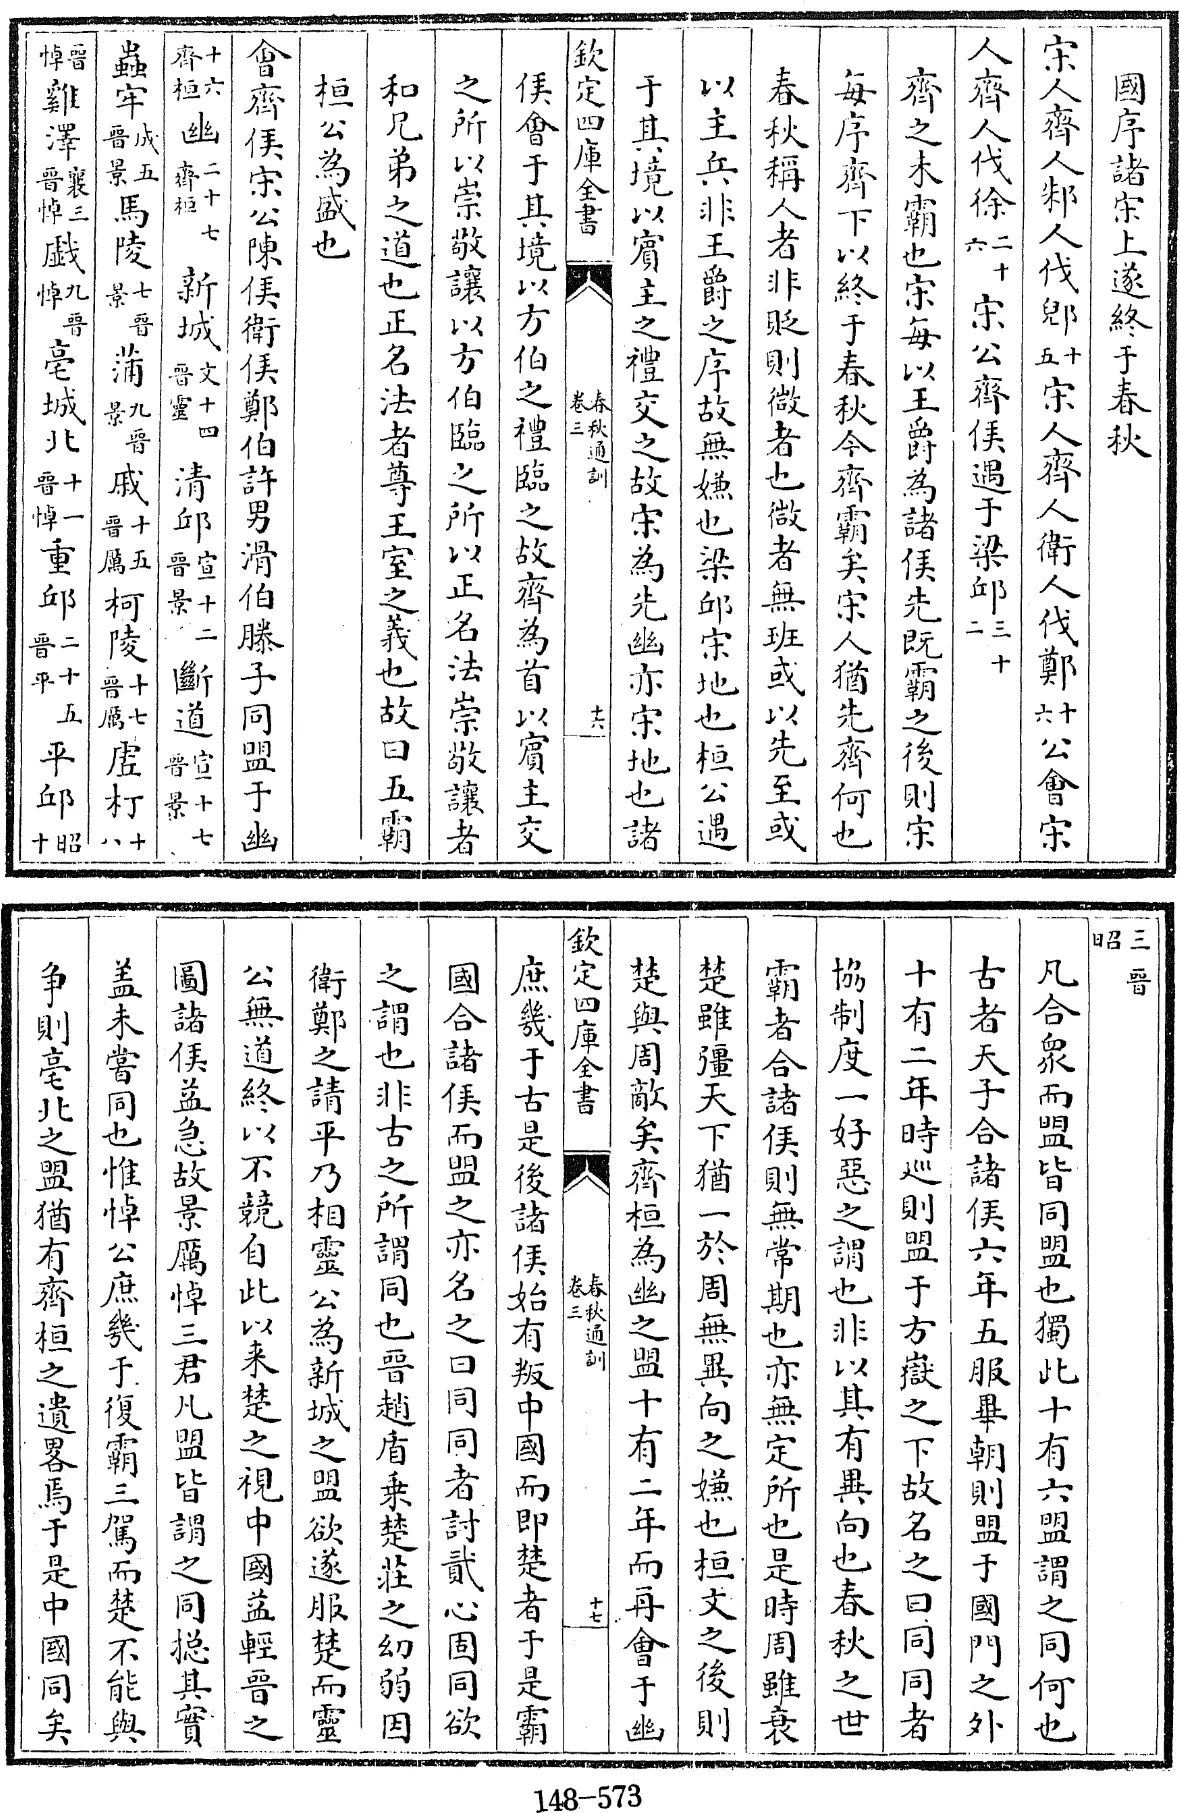 國序諸宋上遂終于春秋
宋人齊人邾人伐郳十五宋人齊人衛人伐鄭十六公會宋
人齊人伐徐二十六宋公齊侯遇于梁邱三十二
齊之未霸也宋每以王爵為諸侯先既霸之後則宋
每序齊下以終于春秋今齊霸矣宋人猶先齊何也
春秋稱人者非貶則微者也微者無班或以先至或
以主兵非王爵之序故無嫌也梁邱宋地也桓公遇
于其境以賓主之禮交之故宋為先幽亦宋地也諸
欽定四庫全書 春秋通訓卷三 十六
侯會于其境以方伯之禮臨之故齊為首以賓主交
之所以崇敬讓以方伯臨之所以正名法崇敬讓者
和兄弟之道也正名法者尊王室之義也故曰五霸
桓公為盛也
會齊侯宋公陳侯衛侯鄭伯許男滑伯滕子同盟于幽
十六齊桓幽二十七齊桓新城文十四晉靈清邱宣十二晉景斷道宣十七晉景
蟲牢成五晉景馬陵七晉景蒲九晉景戚十五晉厲柯陵十七晉厲虛朾十八
晉悼雞澤襄三晉悼戲九晉悼亳城北十一晉悼重邱二十五晉平平邱昭十
三晉昭
凡合衆而盟皆同盟也獨此十有六盟謂之同何也
古者天子合諸侯六年五服畢朝則盟于國門之外
十有二年時巡則盟于方嶽之下故名之曰同同者
協制度一好惡之謂也非以其有異向也春秋之世
霸者合諸侯則無常期也亦無定所也是時周雖衰
楚雖彊天下猶一於周無異向之嫌也桓文之後則
楚與周敵矣齊桓為幽之盟十有二年而再會于幽
欽定四庫全書 春秋通訓卷三 十七
庶幾于古是後諸侯始有叛中國而即楚者于是霸
國合諸侯而盟之亦名之曰同同者討貳心固同欲
之謂也非古之所謂同也晉趙盾乗楚莊之幼弱因
衛鄭之請平乃相靈公為新城之盟欲遂服楚而靈
公無道終以不競自此以来楚之視中國益輕晉之
圖諸侯益急故景厲悼三君凡盟皆謂之同揔其實
盖未嘗同也惟悼公庶幾于復霸三駕而楚不能與
争則亳北之盟猶有齊桓之遺畧焉于是中國同矣
148-573